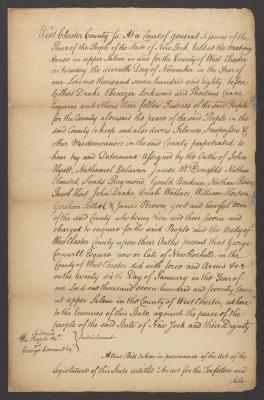 West Chester County ss. At a Court of general Sessions of the
Peace of the People of the State of New York held at the meeting
House in upper Salem in and for the County of West Chester
on tuesday the seventh Day of November in the Year of
our Lord one thousand seven hundred and eighty before
Gilbert Drake, Ebenezer Lockwood and Thadeus Crane
Esquires and others their fellow Justices of the said People
for the County aforesaid the peace of the said People in the
said County to keep and also divers Felonies Trespasses &
other Misdemeanors in the said County perpetrated to
hear try and Determine Assigned by the Oaths of John
Hyatt, Nathaniel Delavan, James McDonalds, Nathan
Olmsted, Sands Raymond, Gould Bouton, Nathan Brown
Jacob Hoyt John Drake Uriah Wallace, William
Gershom Sellick & James Brown, good and lawful Men
of the said County who being then and there sworn and
charged to enquire for the said People and the Body of
West Chester County upon their Oaths present that George
Cornwell Esquire now or late of New Rochelle in the
County of West Chester did with force and Arms &c
on the twenty sixth Day of January in the Year of
our Lord one thousand seven hundred and Seventy
at upper Salem in the County of West Chester, adhere
to the Enemies of this State, against the peace of the
people of the said State of New York and their Dignity
The People &c
vs
George Cornwell Esqr
Indictment
A true Bill taken in pursuance of the Act of the
Legislature of this State entitled An act for the Forfeiture and
Sale